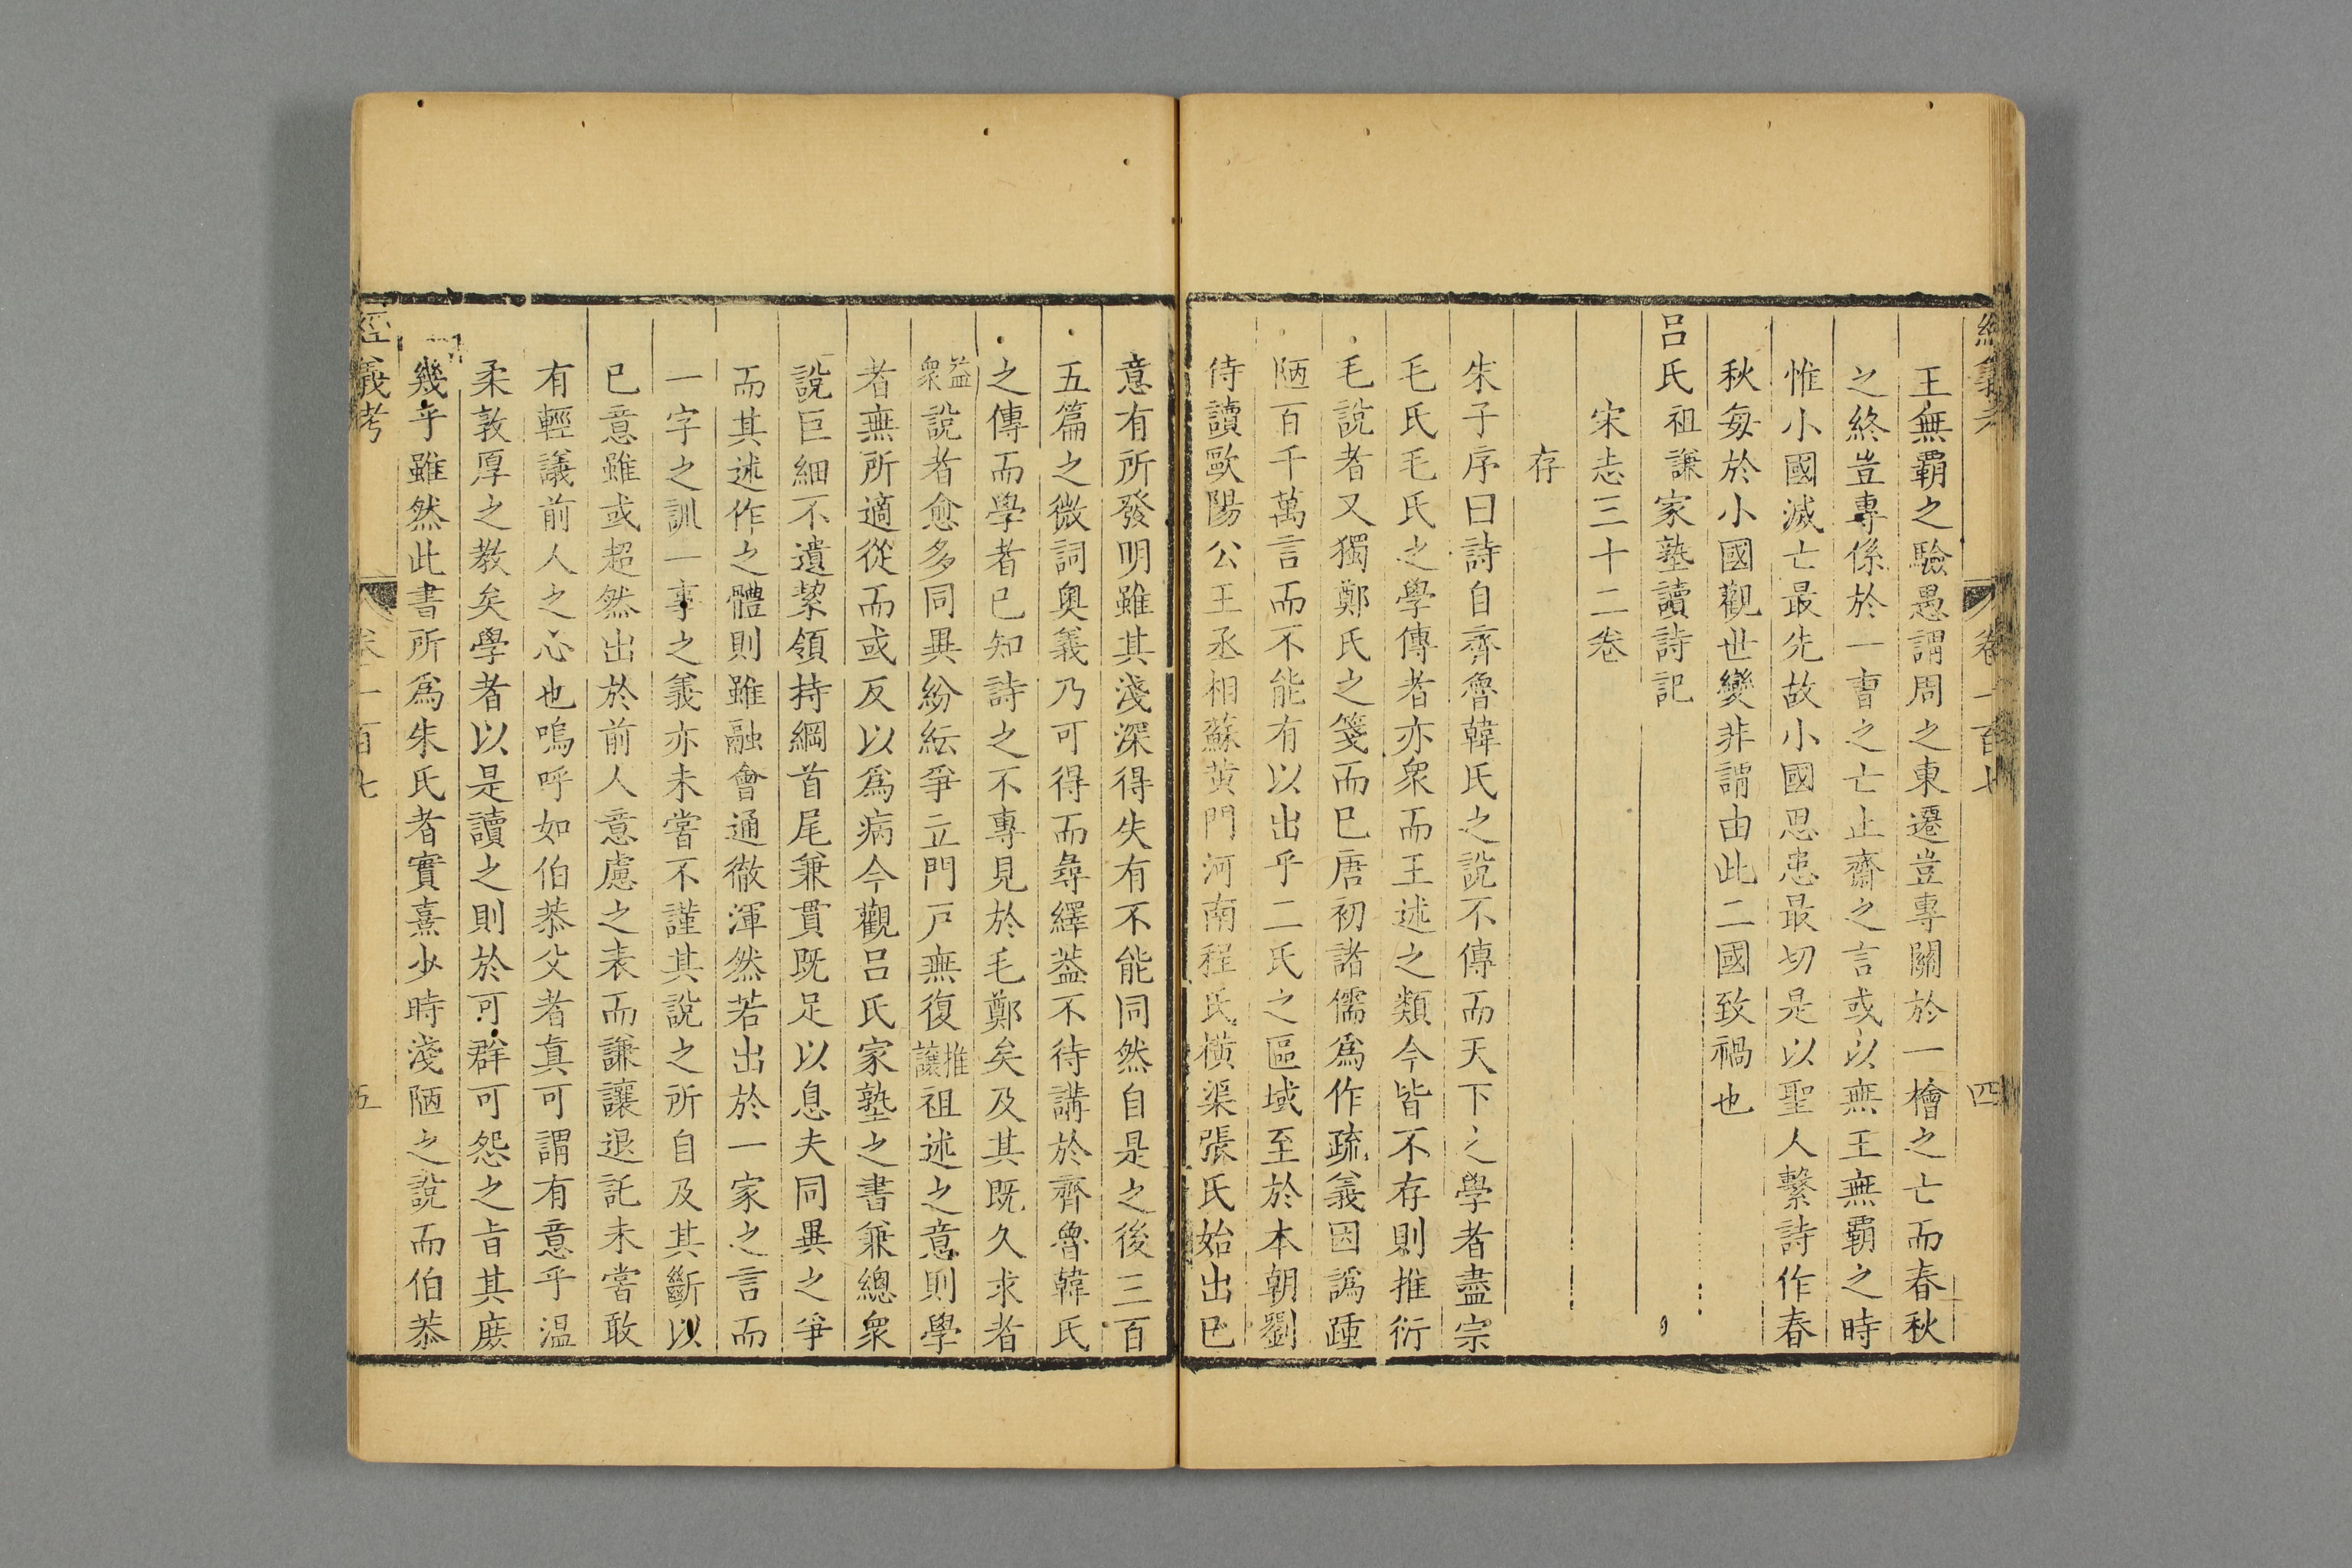 經義考 卷一百七 四
王無霸之驗愚謂周之東遷豈專關於一檜之亡而春秋
之終豈專係於一曹之亡止齋之言或以無王無霸之時
惟小國滅亡最先故小國思患最切是以聖人繫詩作春
秋每於小國觀世變非謂由此二國致禍也
呂氏祖謙家塾讀詩記
宋志三十二卷
存
朱子序曰詩自齊魯韓氏之說不傳而天下之學者盡宗
毛氏毛氏之學傳者亦衆而王述之類今皆不存則推衍
毛說者又獨鄭氏之箋而已唐初諸儒爲作疏義因譌踵
陋百千萬言而不能有以出乎二氏之區域至於本朝劉
侍讀歐陽公王丞相蘇黄門河南程氏橫渠張氏始出已
意有所發明雖其淺深得失有不能同然自是之後三百
五篇之微詞奧義乃可得而尋繹葢不待講於齊魯韓氏
之傳而學者已知詩之不專見於毛鄭矣及其既久求者
益衆說者愈多同異紛紜爭立門戸無復推讓祖述之意則學
者無所適從而或反以爲病今觀呂氏家塾之書兼總衆
說巨細不遺挈領持綱首尾兼貫既足以息夫同異之爭
而其述作之體則雖融會通徹渾然若出於一家之言而
一字之訓一事之義亦未嘗不謹其說之所自及其斷以
已意雖或超然出於前人意慮之表而謙讓退託未嘗敢
有輕議前人之心也嗚呼如伯恭父者真可謂有意乎温
柔敦厚之教矣學者以是讀之則於可群可怨之旨其庶
幾乎雖然此書所爲朱氏者實熹少時淺陋之說而伯恭
經義考 卷一百七 五